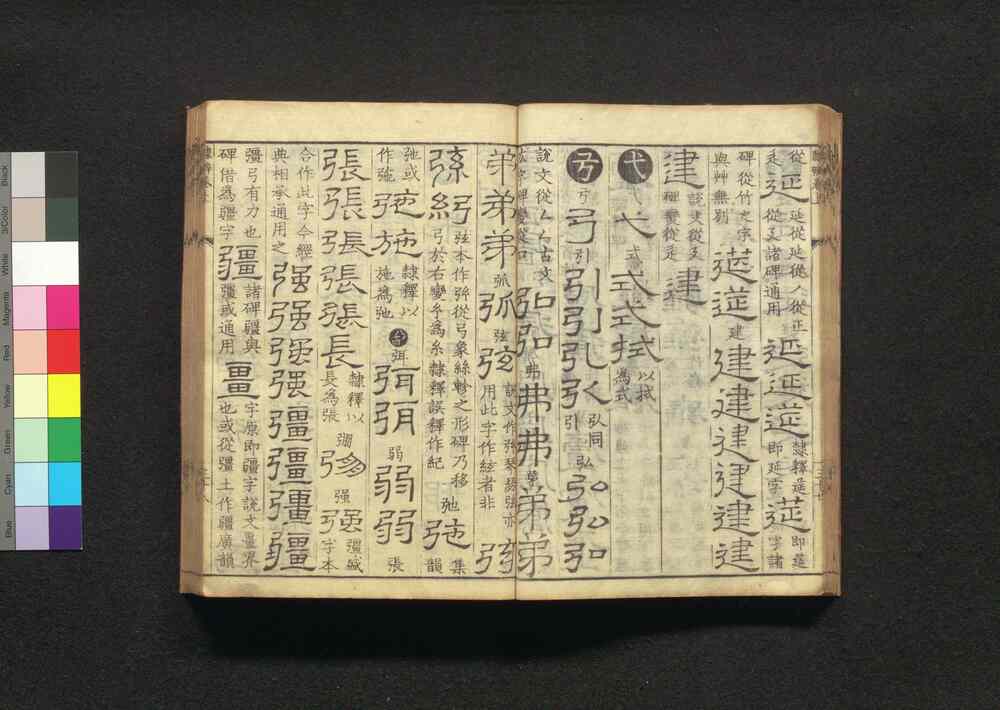 延從㢟從人從正
從廴諸碑通用
延延莚
隸釋莚
即延字
莚
即莚
字諸
碑從竹文字
與艸無別
莚莚
建
建建建建建建
建
說文從廴
碑變從辵
建
弋
弋
式
式式拭
以拭
為式
弓
弓
弓
引
引引
弘同
引
弘
弘弘弘
說文從厶厶古文
弘弘
弗
弗弗
弟弟
弟弟弟
弧
弧
弦
弦
說文作弦琴瑟弦亦
用此字作絃者非
弦本作 從弓象絲軫之形碑乃移
弓於右變 為糸隸釋誤釋作紀
弛
弛
集
韻
弛或
作號
弛施
隸釋以
施為弛
弭
弭弭
弱
弱弱
張
張張張張張長
隸釋以
長為張
彌
强
强
彊盛
字本
合作此字今經
典相承通用之
强强强强彊彊彊彊
彊弓有力也
碑借為疆字
彊
諸碑彊與
疆或通用
畺
字原即疆字說文畺界
也或從彊土作疆廣韻